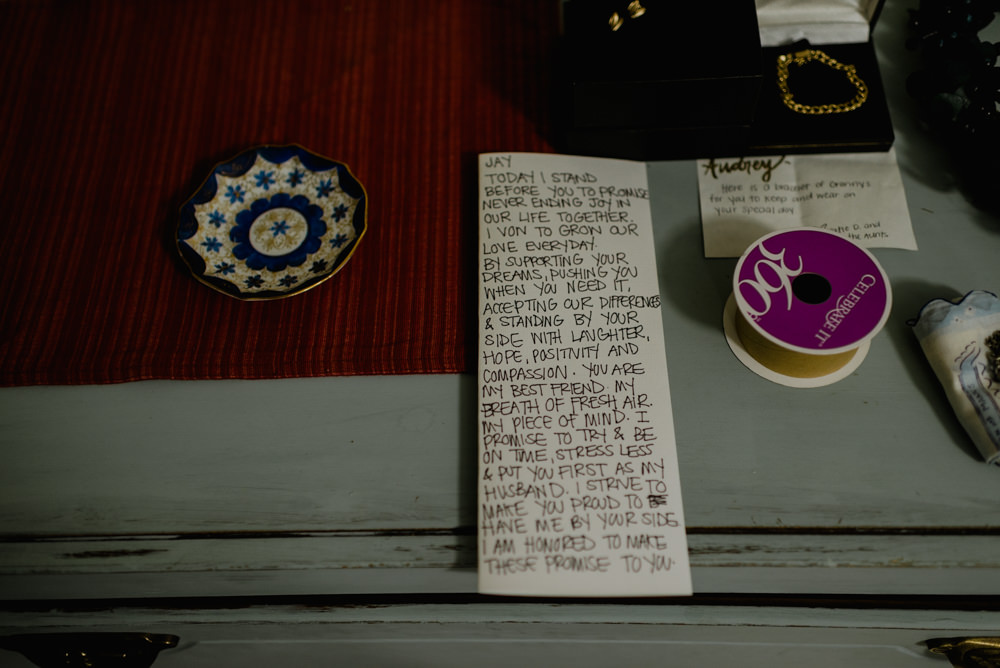 JAY
TODAY I STAND
BEFORE YOU TO PROMISE
NEVER ENDING JOY IN
OUR LIFE TOGETHER.
I VON TO GROW OUR
LOVE EVERYDAY.
BY SUPPORTING YOUR
DREAMS, PUSHING YOU
WHEN YOU NEED IT,
ACCEPTING OUR DIFFERENCES
& STANDING BY YOUR
SIDE WITH LAUGHTER,
HOPE, POSITIVITY AND
COMPASSION. YOU ARE
MY BEST FRIEND. MY
BREATH OF FRESH AIR.
MY PIECE OF MIND. I
PROMISE TO TRY & BE
ON TIME, STRESS LESS
& PUT YOU FIRST AS MY
HUSBAND. I STRIVE TO
MAKE YOU PROUD TO
HAVE ME BY YOUR SIDE
I AM HONORED TO MAKE
THESE PROMISE TO YOU.
Audrey
Here is a bracelet of Granny's
for you to keep and wear on
your special day.
D. and
the Aunts
360
CELEBRATE IT™